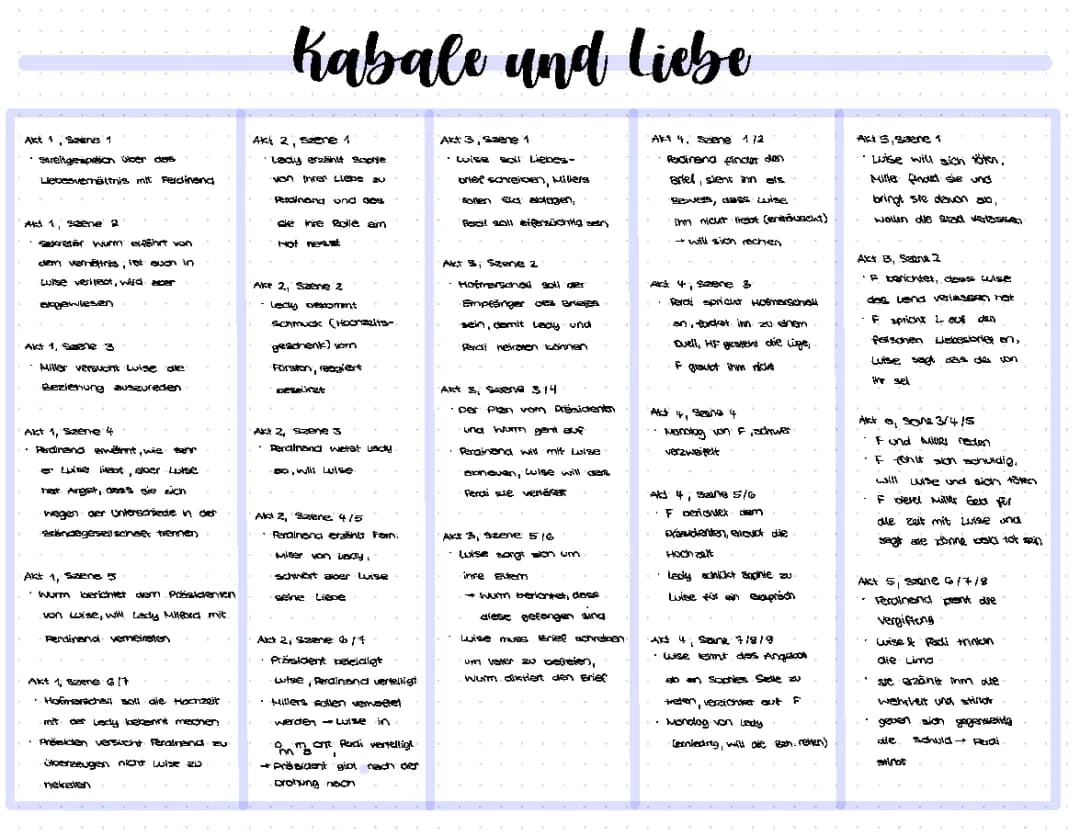 Kabale und Liebe
Akt 1, Szene 1
· Streitgespräch über das
Liebesverhältnis mit Ferdinand
Akt 1, Szene 2
· Sekretär Wurm erfährt von
dem Verhältnis, ist auch in
Luise verliebt, wird aber
abgewiesen
Akt 1, Szene 3
· Miller versucht Luise die
Beziehung auszureden
Akt 1, Szene 4
· Ferdinand erwähnt, wie sehr
er Luise liebt, aber Luise
hat Angst, dass sie sich
wegen der Unterschiede in der
Ständegesellschaft trennen
Akt 1, Szene 5
· Wurm berichtet dem Präsidenten
von Luise, will Lady Milford mit
Ferdinand verheiraten
Akt 1, Szene 6/7
· Hofmarschall soll die Hochzeit
mit der Lady bekannt machen
· Präsiden versucht Ferdinand zu
überzeugen nicht Luise zu
heiraten
Akt 2, Szene 1
· Lady erzählt Sophie
von ihrer Liebe zu
Ferdinand und das
sie ihre Rolle am
Hof hasst
Akt 2, Szene 2
· Lady bekommt
Schmuck (Hochzeits-
geschenk) vom
Fürsten, reagiert
bestürzt
Akt 2, Szene 3
· Ferdinand weist Lady
ab, will Luise
Akt 2, Szene 4/5
· Ferdinand erzählt Fam.
Miller von Lady,
schwört aber Luise
seine Liebe
Akt 2, Szene 6/7
· Präsident beleidigt
Luise, Ferdinand verteidigt
· Millers sollen verhaftet
werden → Luise in
Ferdi verteidigt
→ Präsident gibt nach der
Drohung nach
Akt 3, Szene 1
· Luise soll Liebes-
brief schreiben, Millers
sollen Eid ablegen,
Ferdi soll eifersüchtig sein
Akt 3, Szene 2
· Hofmarschall soll der
Empfänger des Briefes
sein, damit Lady und
Ferdi heiraten können
Akt 3, Szene 3/4
· Der Plan vom Präsidenten
und Wurm geht auf
· Ferdinand will mit Luise
abhauen, Luise will dass
Ferdi sie verlässt
Akt 3, Szene 5/6
· Luise sorgt sich um
ihre Eltern
→ Wurm berichtet, dass
diese gefangen sind
· Luise muss Brief schreiben
um Vater zu befreien,
Wurm diktiert den Brief
Akt 4, Szene 1/2
· Ferdinand findet den
Brief, sieht ihn als
Beweis, dass Luise
ihn nicht liebt (enttäuscht)
→ will sich rächen
Akt 4, Szene 3
· Ferdi spricht Hofmarschall
an, fordert ihn zu einem
Duell, HF gesteht die Lüge,
F glaubt ihm nicht
Akt 4, Szene 4
· Monolog von F, schwer
verzweifelt
Akt 4, Szene 5/6
· F berichtet dem
Präsidenten, erlaubt die
Hochzeit
· Lady schickt Sophie zu
Luise für ein Gespräch
Akt 4, Szene 7/8/9
· Luise lehnt das Angebot
ab an Sophies Stelle zu
treten, verzichtet auf F
· Monolog von Lady
(erniedrig, will die Bez. retten)
Akt 5, Szene 1
· Luise will sich töten,
Miller findet sie und
bringt sie davon ab,
wollen die Stadt verlassen
Akt 5, Szene 2
· F berichtet, dass Luise
das Land verlassen hat
· F spricht L auf den
falschen Liebesbrief an,
Luise sagt das der von
ihr sei
Szene 3/4/5
· F und Miller reden
· F fühlt sich schuldig,
will Luise und sich töten
· F bietet Miller Geld für
die Zeit mit Luise und
sagt sie könne bald tot sein
Akt 5, Szene 6/7/8
· Ferdinand plant die
Vergiftung
· Luise & Ferdi trinken
die Limo
· sie erzählt ihm die
Wahrheit und stirbt
· geben sich gegenseitig
die Schuld → Ferdi
stirbt